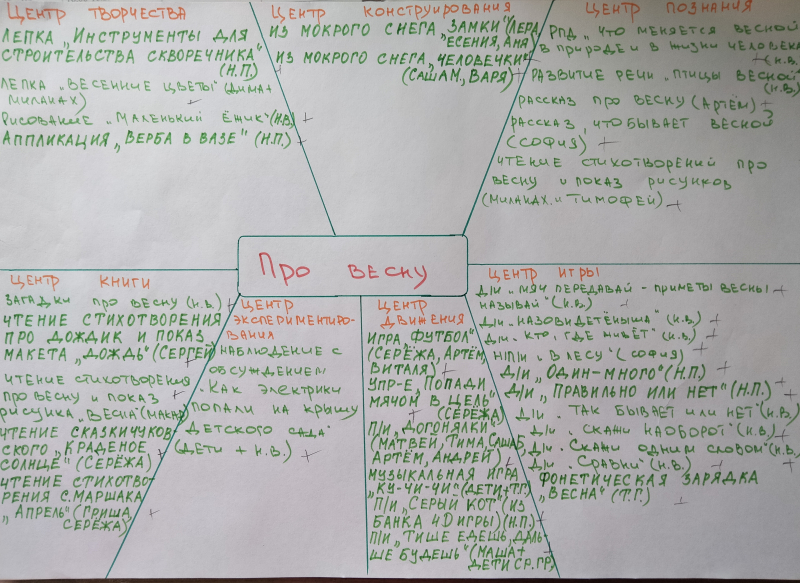 ЦЕНТР ТВОРЧЕСТВА
ЛЕПКА „ИНСТРУМЕНТЫ ДЛЯ
СТРОИТЕЛЬСТВА СКВОРЕЧНИКА"
(Н.П.)
ЛЕПКА „ВЕСЕННИЕ ЦВЕТЫ" (ДИМА+
МИЛАНАХ)
РИСОВАНИЕ „МАЛЕНЬКИЙ ЁЖИК" (Н.В.)
АППЛИКАЦИЯ „ВЕРБА В ВАЗЕ" (Н.П.)
ЦЕНТР КОНСТРУИРОВАНИЯ
ИЗ МОКРОГО СНЕГА „ЗАМКИ" (ЛЕРА,
ЕСЕНИЯ, АНЯ)
ИЗ МОКРОГО СНЕГА „ЧЕЛОВЕЧКИ"
(САША М, ВАРЯ)
ЦЕНТР ПОЗНАНИЯ
РПД „ЧТО МЕНЯЕТСЯ ВЕСНОЙ
В ПРИРОДЕ И В ЖИЗНИ ЧЕЛОВЕКА
(Н.В.)
РАЗВИТИЕ РЕЧИ „ПТИЦЫ ВЕСНОЙ"
(Н.В.)
РАССКАЗ ПРО ВЕСНУ (АРТЁМ)
РАССКАЗ, ЧТО БЫВАЕТ ВЕСНОЙ?
(СОФИЯ)
ЧТЕНИЕ СТИХОТВОРЕНИЙ ПРО
ВЕСНУ И ПОКАЗ РИСУНКОВ
(МИЛАНАХ. И ТИМОФЕЙ)
ПРО ВЕСНУ
ЦЕНТР КНИГИ
ЗАГАДКИ ПРО ВЕСНУ (Н.В.)
ЧТЕНИЕ СТИХОТВОРЕНИЯ
ПРО ДОЖДИК И ПОКАЗ
МАКЕТА „ДОЖДЬ" (СЕРГЕЙ)
ЧТЕНИЕ СТИХОТВОРЕНИЯ
ПРО ВЕСНУ И ПОКАЗ
РИСУНКА „ВЕСНА" (МАКАР)
ЧТЕНИЕ СКАЗКИ ЧУКОВ-
СКОГО „КРАДЕНОЕ
СОЛНЦЕ" (СЕРЁЖА)
ЧТЕНИЕ СТИХОТВО-
РЕНИЯ С. МАРШАКА
„АПРЕЛЬ" (ГРИША,
СЕРЁЖА)
ЦЕНТР
ЭКСПЕРИМЕНТИРО-
ВАНИЯ
НАБЛЮДЕНИЕ С
ОБСУЖДЕНИЕМ
„КАК ЭЛЕКТРИКИ
ПОПАЛИ НА КРЫШУ
ДЕТСКОГО САДА"
(ДЕТИ + Н.В.)
ЦЕНТР
ДВИЖЕНИЯ
ИГРА „ФУТБОЛ"
(СЕРЁЖА, АРТЁМ,
ВИТАЛЯ)
УПР-Е „ПОПАДИ
МЯЧОМ В ЦЕЛЬ"
(СЕРЁЖА)
П/И „ДОГОНЯЛКИ"
(МАТВЕЙ, ТИМА, САША Б,
АРТЁМ, АНДРЕЙ)
МУЗЫКАЛЬНАЯ ИГРА
„КУ-ЧИ-ЧИ" (ДЕТИ+Т.Г.)
П/И „СЕРЫЙ КОТ" (ИЗ
БАНКА 4D ИГРЫ) (Н.П.)
П/И „ТИШЕ ЕДЕШЬ, ДАЛЬ-
ШЕ БУДЕШЬ" (МАША+
ДЕТИ СР. ГР.)
ЦЕНТР ИГРЫ
Д/И „МЯЧ ПЕРЕДАВАЙ - ПРИМЕТЫ ВЕСНЫ
НАЗЫВАЙ" (Н.В.)
Д/И „НАЗОВИ ДЕТЁНЫША" (Н.В.)
Д/И „КТО, ГДЕ ЖИВЁТ" (Н.В.)
Н/П/И „В ЛЕСУ" (СОФИЯ)
Д/И „ОДИН-МНОГО" (Н.П.)
Д/И „ПРАВИЛЬНО ИЛИ НЕТ" (Н.П.)
Д/И „ТАК БЫВАЕТ ИЛИ НЕТ" (Н.В.)
Д/И „СКАЖИ НАОБОРОТ" (Н.В.)
Д/И „СКАЖИ ОДНИМ СЛОВОМ" (Н.В.)
Д/И „СРАВНИ" (Н.В.)
ФОНЕТИЧЕСКАЯ ЗАРЯДКА
„ВЕСНА" (Т.Г.)